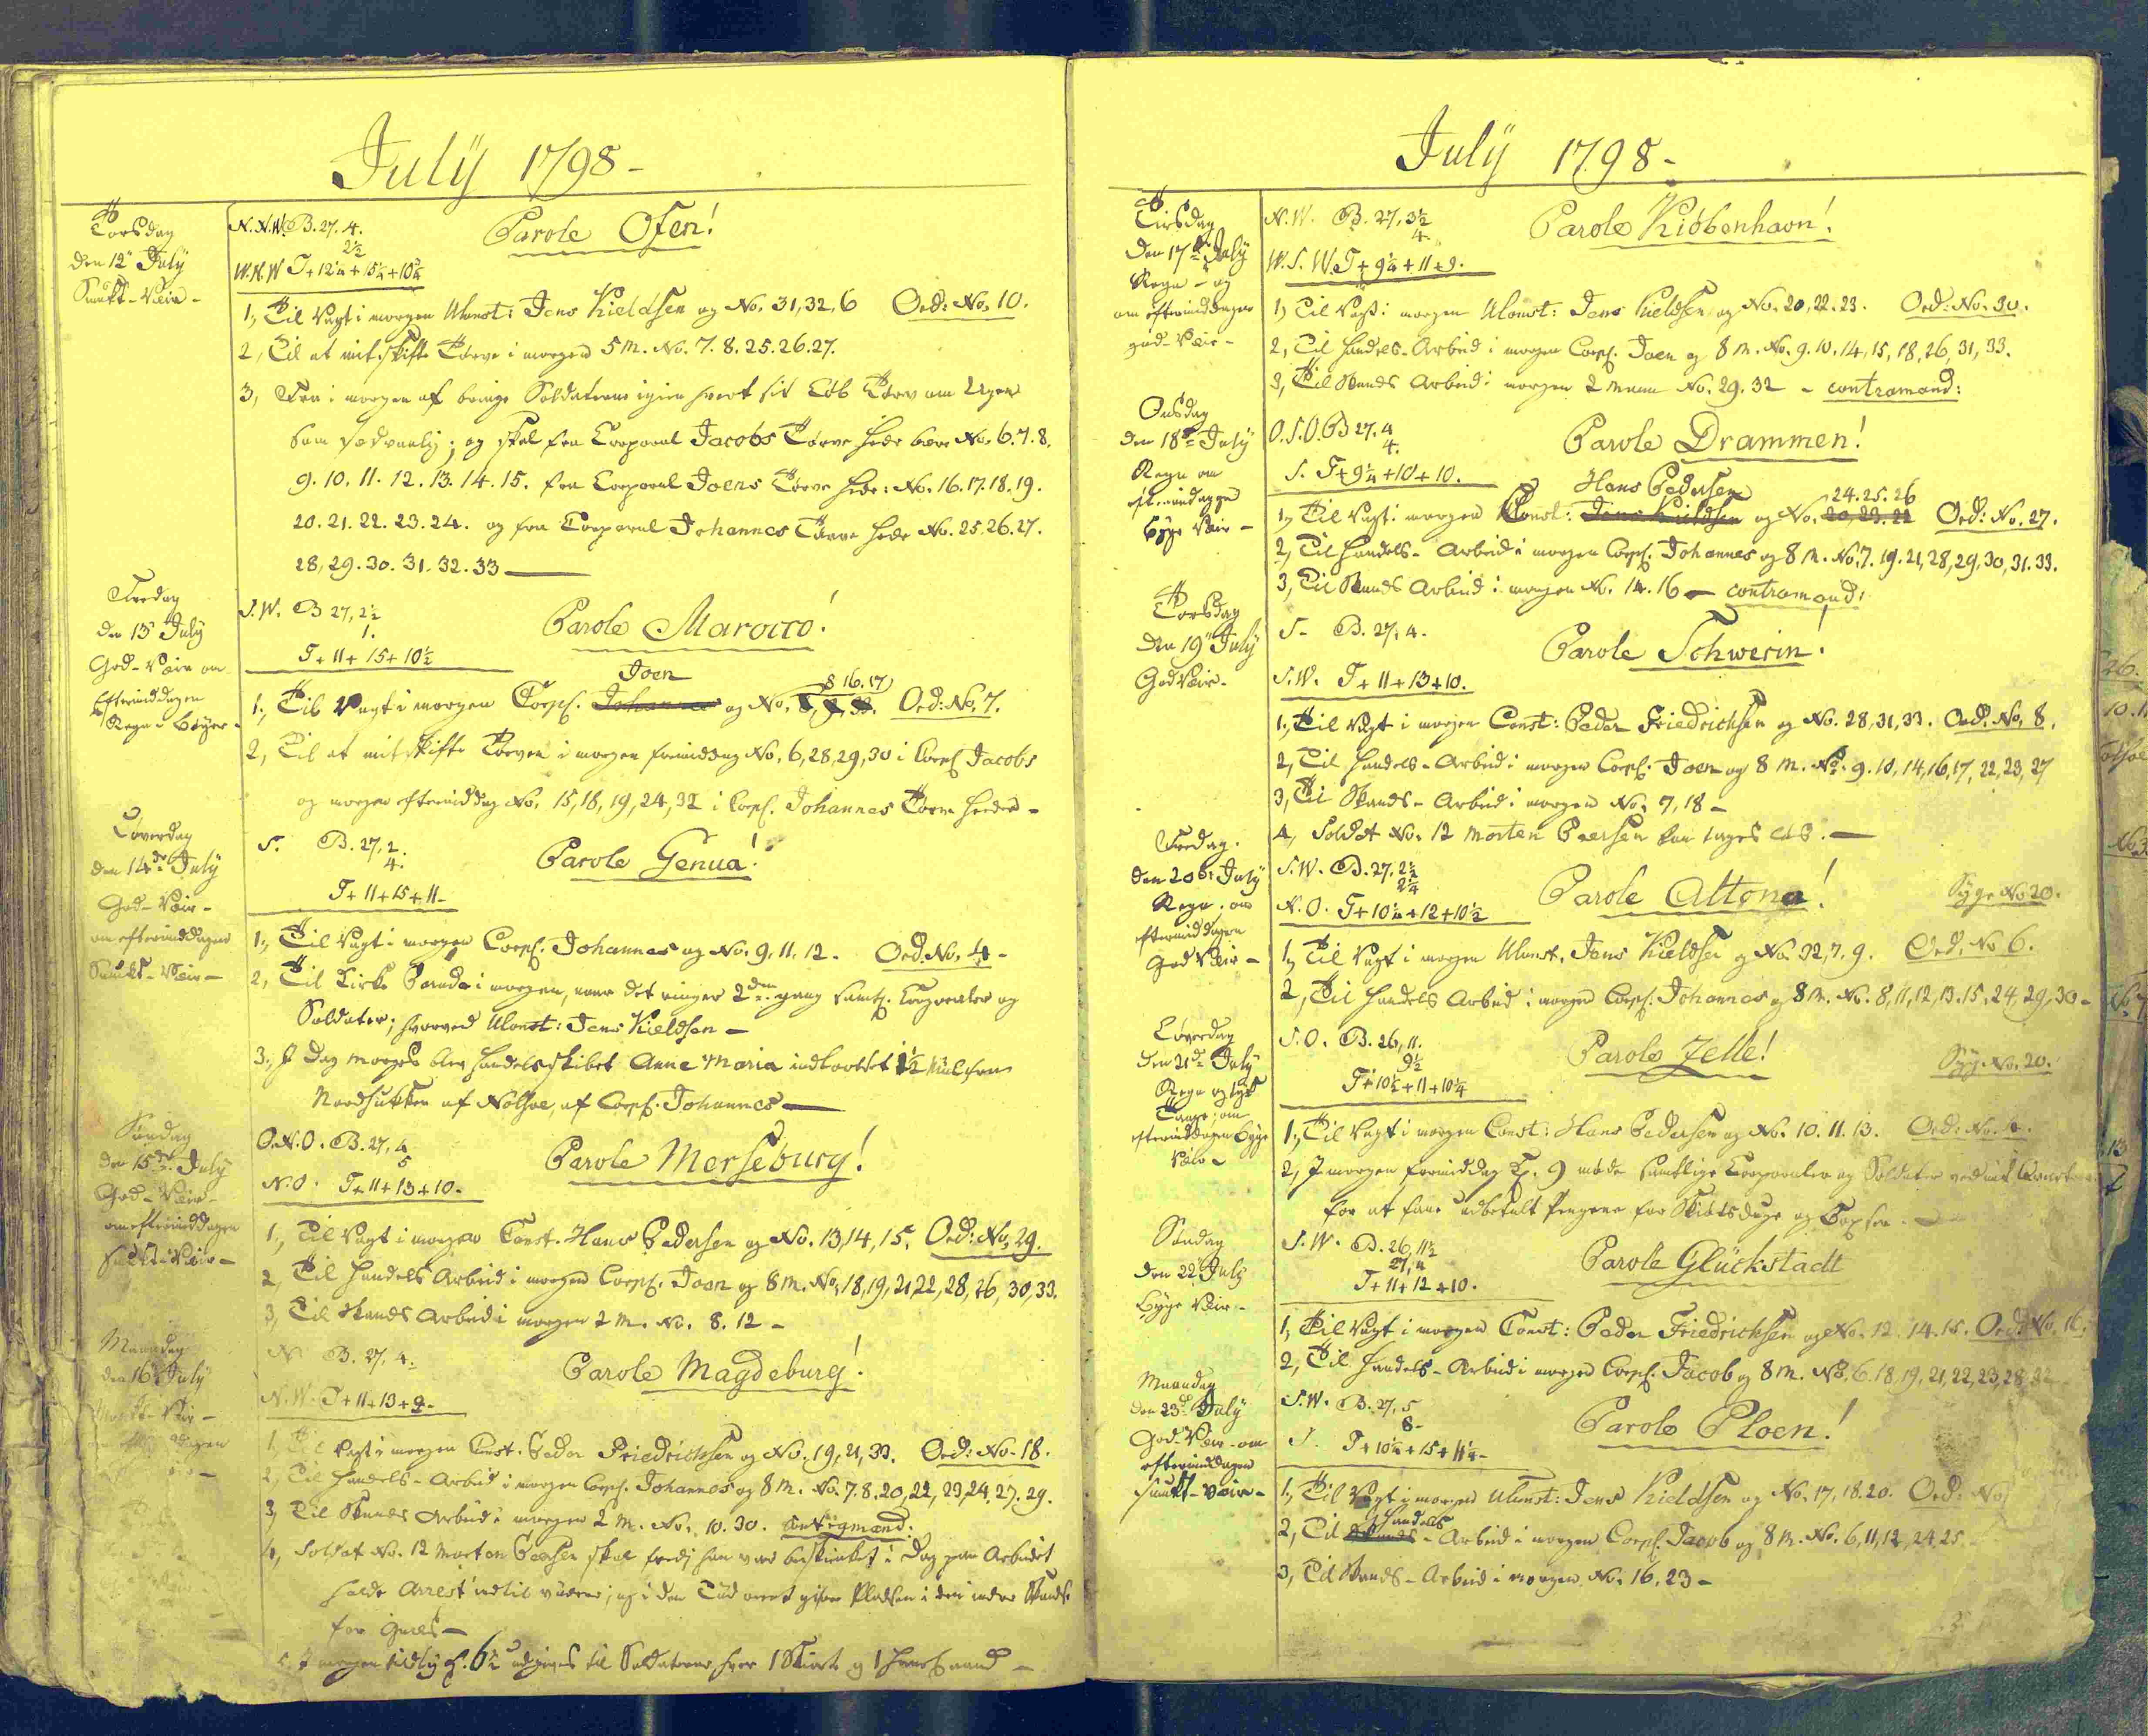 July 1798 -
Torsdag
den 12te July
Smukt-Veir -
N.N.W. B. 27. 4.
2½
W.N.W T+12¼+15¼+10¾
Parole Ofen!
1, Til Vagt i morgen Uconst: Jens Kieldsen og No. 31, 32, 6 Ord: No. 10.
2, Til at skifte Törv i morgen 5 M. No. 7. 8. 25. 26. 27.
3, Fra i morgen af bringe Soldaterne igien hvert sit Lób Törv om Ugen
som sædvanlig; og skal fra Corporal Jacobs Törve hede bære No. 6. 7. 8.
9. 10. 11. 12. 13. 14. 15. fra Corporal Joens Törve hede: No. 16. 17. 18. 19.
20. 21. 22. 23. 24. og fra Corporal Johannes Törve hede No. 25. 26. 27.
28, 29. 30. 31. 32. 33 —
Fredag
den 13de July
God-Veir om
Eftermiddagen
Regn Byger -
S.W. B 27, 2½
1.
T+11+15+10½
Parole Marocco!
Joen
8 16. 17
1, Til Vagt i morgen Corpl. Johannes og No. Ord: No. 7.
2, Til at skifte Törven i morgen formiddag No. 6, 28, 29, 30 i Corpl Jacobs
og morgen eftermiddag No. 15, 18, 19, 24, 32 i Corpl. Johannes Törve heder -
Löverdag
den 14de July
God-Veir -
om eftermiddagen
Smukt-Veir -
S. B. 27, 2.
4.
T+11+15+11-
Parole Genua!
1, Til Vagt i morgen Corpl: Johannes og No. 9, 11, 12. Ord. No. 4 -
2, Til Kirke Parade i morgen, naar det ringer 2den gang samtl. Corporaler og
Soldater; hvorved Uconst: Jens Kieldsen -
3, I Dag morges blev Handelsskibet Anne Maria indlodset 1½ Miil fra
Nordsukken af Nolsoe, af Corpl. Johannes —
Söndag
den 15de July
God-Veir-
om eftermiddagen
smukt-Veir -
O.N.O. B. 27, 4
5
N.O. T+11+13+10-
Parole Merseburg!
1, Til Vagt i morgen Const. Hans Pedersen og No. 13, 14, 15, Ord: No. 29.
2, Til Handels Arbeid i morgen Corpl. Joen og 8 M. No. 18, 19, 21, 22, 28, 26, 30, 33.
3, Til Skands Arbeid i morgen 2 M. No. 8. 12 -
Maandag
den 16de July
N B. 27. 4.
N.W. T+11+13+9-
Parole Magdeburg!
1, Til Vagt i morgen Const. Peder Friedrichsen og No. 19, 21, 33. Ord: No. 18.
2, Til Handels-Arbeid i morgen Corpl. Johannes og 8 M. No. 7. 8. 20, 22, 23, 24, 27. 29.
3, Til Skands Arbeid i morgen 2 M. No. 10. 30.
4, Soldat No. 12 Morten Poersen skal fordj han var beskienket i Dag paa Arbeidet
holde Arrest indtil videre; og i den Tiid givre Pladsen i den indre Skandse
for Græs -
5, I morgen tidlig Kl. 6½ udgives til Soldaterne hver 1 Skiorte og 1
July 1798 -
Tirsdag
den 17de July
Regn - og
om eftermiddagen
god-Veir -
N.W. B. 27, 3½
4.
W.S.W. T+9¼+11+9.
Parole Kiöbenhavn!
1, Til Vagt i morgen Uconst: Jens Kieldsen og No. 20, 22. 23. Ord: No. 30.
2, Til Handels-Arbeid i morgen Corpl. Joen og 8 M. No. 9. 10. 14, 15, 18, 26, 31, 33.
3, Til Skands Arbeid i morgen 2 Mann No. 29. 32 - contramand:
Onsdag
den 18de July
Regn om
eftermiddagen
Byge Veir -
O.S.O. B 27. 4
4.
S. T+9¼+10+10.
Parole Drammen!
Hans Pedersen
24. 25. 26
1, Til Vagt i morgen Const: Jens Kieldsen og No. 20, 23. 22 Ord: No. 27.
2, Til Handels-Arbeid i morgen Corpl. Johannes og 8 M. No. 7. 19. 21, 28, 29, 30, 31. 33.
3, Til Skands Arbeid i morgen No. 14. 16 - contramand!
Torsdag
den 19de July
God Veir-
S- B. 27, 4.
S.W. T+11+13+10.
Parole Schwerin!
1, Til Vagt i morgen Const: Peder Friedrichsen og No. 28, 31, 33. Ord. No. 8.
2, Til Handels-Arbeid i morgen Corpl. Joen og 8 M. No. 9. 10, 14, 16, 17, 22, 23, 27
3, Til Skands-Arbeid i morgen No. 7, 18 -
4, Soldat No. 12 Morten Poersen kan tages lós. —
Fredag.
den 20de July
Regn. om
eftermiddagen
God Veir -
S.W. B. 27. 2½
2¼
N.O. T+10¼+12+10½
Parole Altona!
Syge No 20.
1, Til Vagt i morgen Uconst. Jens Kieldsen og No. 32, 7. 9. Ord. No 6.
2, Til Handels Arbeid i morgen Corpl. Johannes og 8 M. No. 8, 11, 12, 13. 15, 24, 29, 30 -
Löverdag
den 21de July
Regn og tyk
Taage; om
eftermiddagen Byge
Veir -
S.O. B. 26, 11.
9½
T+10½+11+10¼
Parole Zelle!
Syg. No. 20.
1, Til Vagt i morgen Const: Hans Pedersen og No. 10. 11. 13. Ord: No. 4.
2, I morgen formiddag Kl. 9 möde samtlige Corporaler og Soldater ved
for at faae udbetalt Pengene for Skiötsduge og
Söndag
den 22de July
Byge Veir -
S.W. B. 26, 11½
27, 4
T+11+12+10.
Parole Glückstadt
1, Til Vagt i morgen Const: Peder Friedrichsen og No. 12. 14. 15. Ord: No. 16.
2, Til Handels-Arbeid i morgen Corpl. Jacob og 8 M. No. 6. 18, 19, 21, 22, 23, 28, 32
Maandag
den 23de July
God-Veir-om
eftermiddagen
smukt-Veir -
S.W. B. 27, 5
8-
S. T+10¼+15+11¼-
Parole Ploen!
1, Til Vagt i morgen Uconst: Jens Kieldsen og No. 17, 18. 20. Ord: No
Handels
2, Til Skands-Arbeid i morgen Corpl. Jacob og 8 M. No. 6, 11, 12, 24, 25
3, Til Skands-Arbeid i morgen No. 16. 23 -